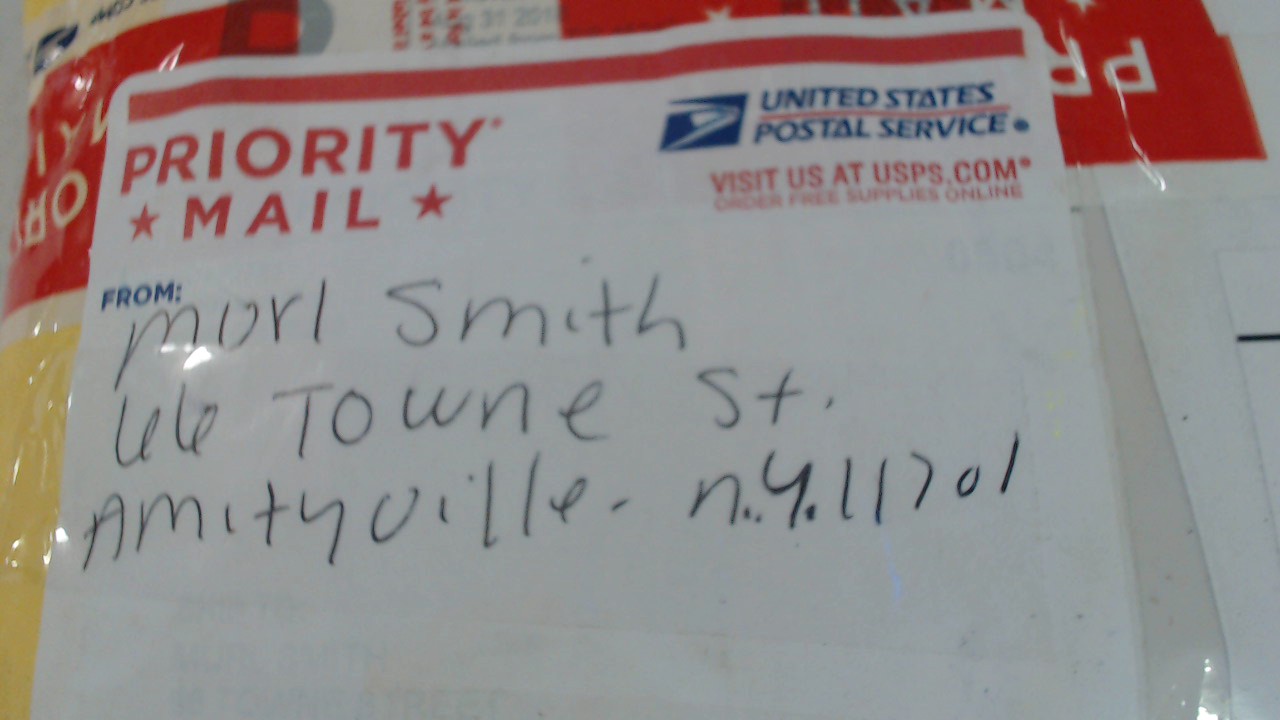 31 201
PR
PRIORITY
★ MAIL ★
UNITED STATES
POSTAL SERVICE
VISIT US AT USPS.COM®
ORDER FREE SUPPLIES ONLINE
FROM:
Smith
66 Towne St.
Amityville- n.y. 11701